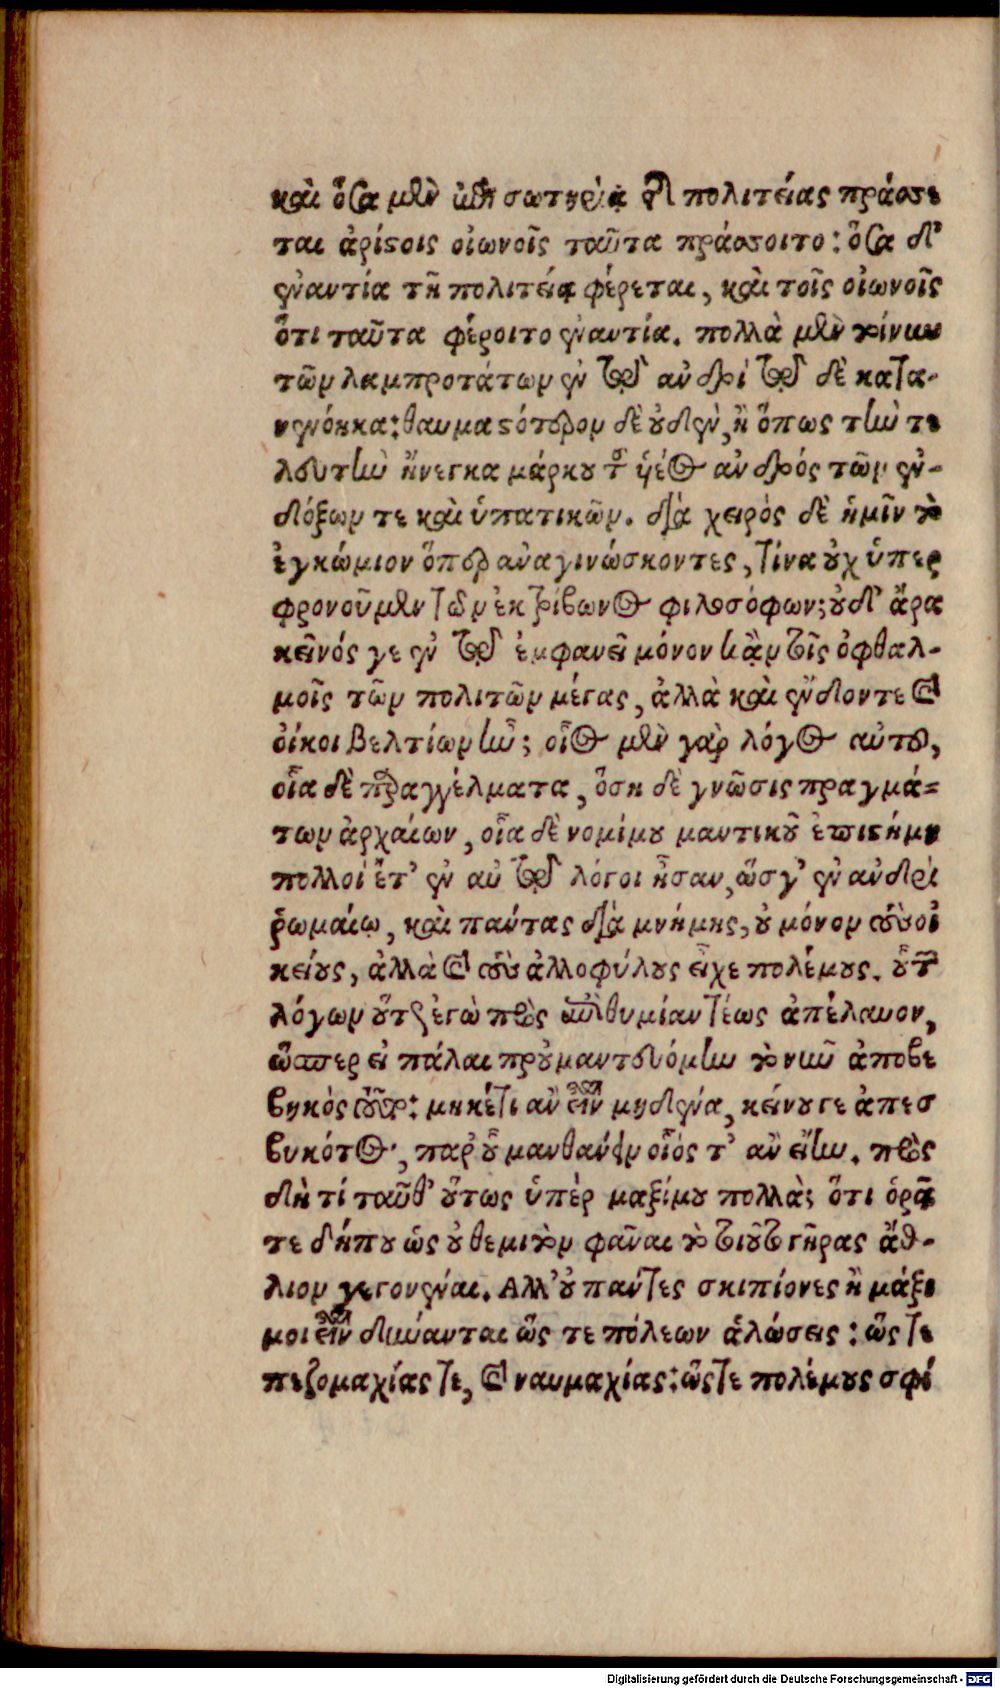 καὶ ὅσα μὲν ἐπὶ σωτηρίᾳ τῆς πολιτείας πράσσε
ται ἀρίστοις οἰωνοῖς ταῦτα πράσσοιτο: ὅσα δ'
ἐναντία τῇ πολιτείᾳ φέρεται, καὶ τοῖς οἰωνοῖς
ὅτι ταῦτα φέροιτο ἐναντία. πολλὰ μὲν τοίνυν
τῶν λαμπροτάτων ἐν τῷδε ἀνδρὶ τῷδε δὲ κατα-
νενόηκα: θαυμαστότερον δὲ οὐδὲν, ἢ ὅπως τὴν τε
λευτὴν ἤνεγκα μάρκου τοῦ υἱέος ἀνδρός τῶν ἐν-
δόξων τε καὶ ὑπατικῶν. διὰ χειρὸς δὲ ἡμῖν τὸ
ἐγκώμιον ὅπερ ἀναγινώσκοντες, τίνα οὐχ ὑπερ
φρονοῦμεν τῶν ἐκ τρίβωνος φιλοσόφων; οὐδ' ἄρα
κεῖνός γε ἐν τῷ ἐμφανεῖ μόνον κἀν τοῖς ὀφθαλ-
μοῖς τῶν πολιτῶν μέγας, ἀλλὰ καὶ ἔνδον τε καὶ
οἴκοι βελτίων ἦν; οἷος μὲν γὰρ λόγος αὐτῷ,
οἷα δὲ παραγγέλματα, ὅση δὲ γνῶσις πραγμά=
των ἀρχαίων, οἷα δὲ νομίμου μαντικοῦ ἐπιστήμη
πολλοί ἔτ' ἐν αὐτῷ λόγοι ἦσαν, ὥσγ' ἐν ἀνδρὶ
ῥωμαίῳ, καὶ πάντας διὰ μνήμης, οὐ μόνον τοὺς οἰ
κείους, ἀλλὰ καὶ τοὺς ἀλλοφύλους εἶχε πολέμους. οὗ τῶν
λόγων οὕτως ἐγὼ πρὸς ἐπιθυμίαν τέως ἀπέλαυον,
ὥσπερ εἰ πάλαι προὐμαντευόμην τὸ νῦν ἀποβε
βηκὸς τοῦτο: μηκέτι ἂν εἶναι μηδένα, κείνου γε ἀπεσ
βηκότος, παρ' οὗ μανθάνειν οἷός τ' ἂν εἴην. πρὸς
δὴ τί ταῦθ' οὕτως ὑπὲρ μαξίμου πολλὰ; ὅτι ὁρᾶ
τε δήπου ὡς οὐ θεμιτὸν φᾶναι τὸ τοιοῦτο γῆρας ἄθ-
λιον γεγονέναι. Ἀλλ' οὐ πάντες σκιπίονες ἢ μάξι
μοι εἶναι δύνανται ὥς τε πόλεων ἁλώσεις: ὥς τε
πεζομαχίας τε, καὶ ναυμαχίας: ὥς τε πολέμους σφί
Digitalisierung gefördert durch die Deutsche Forschungsgemeinschaft - DFG